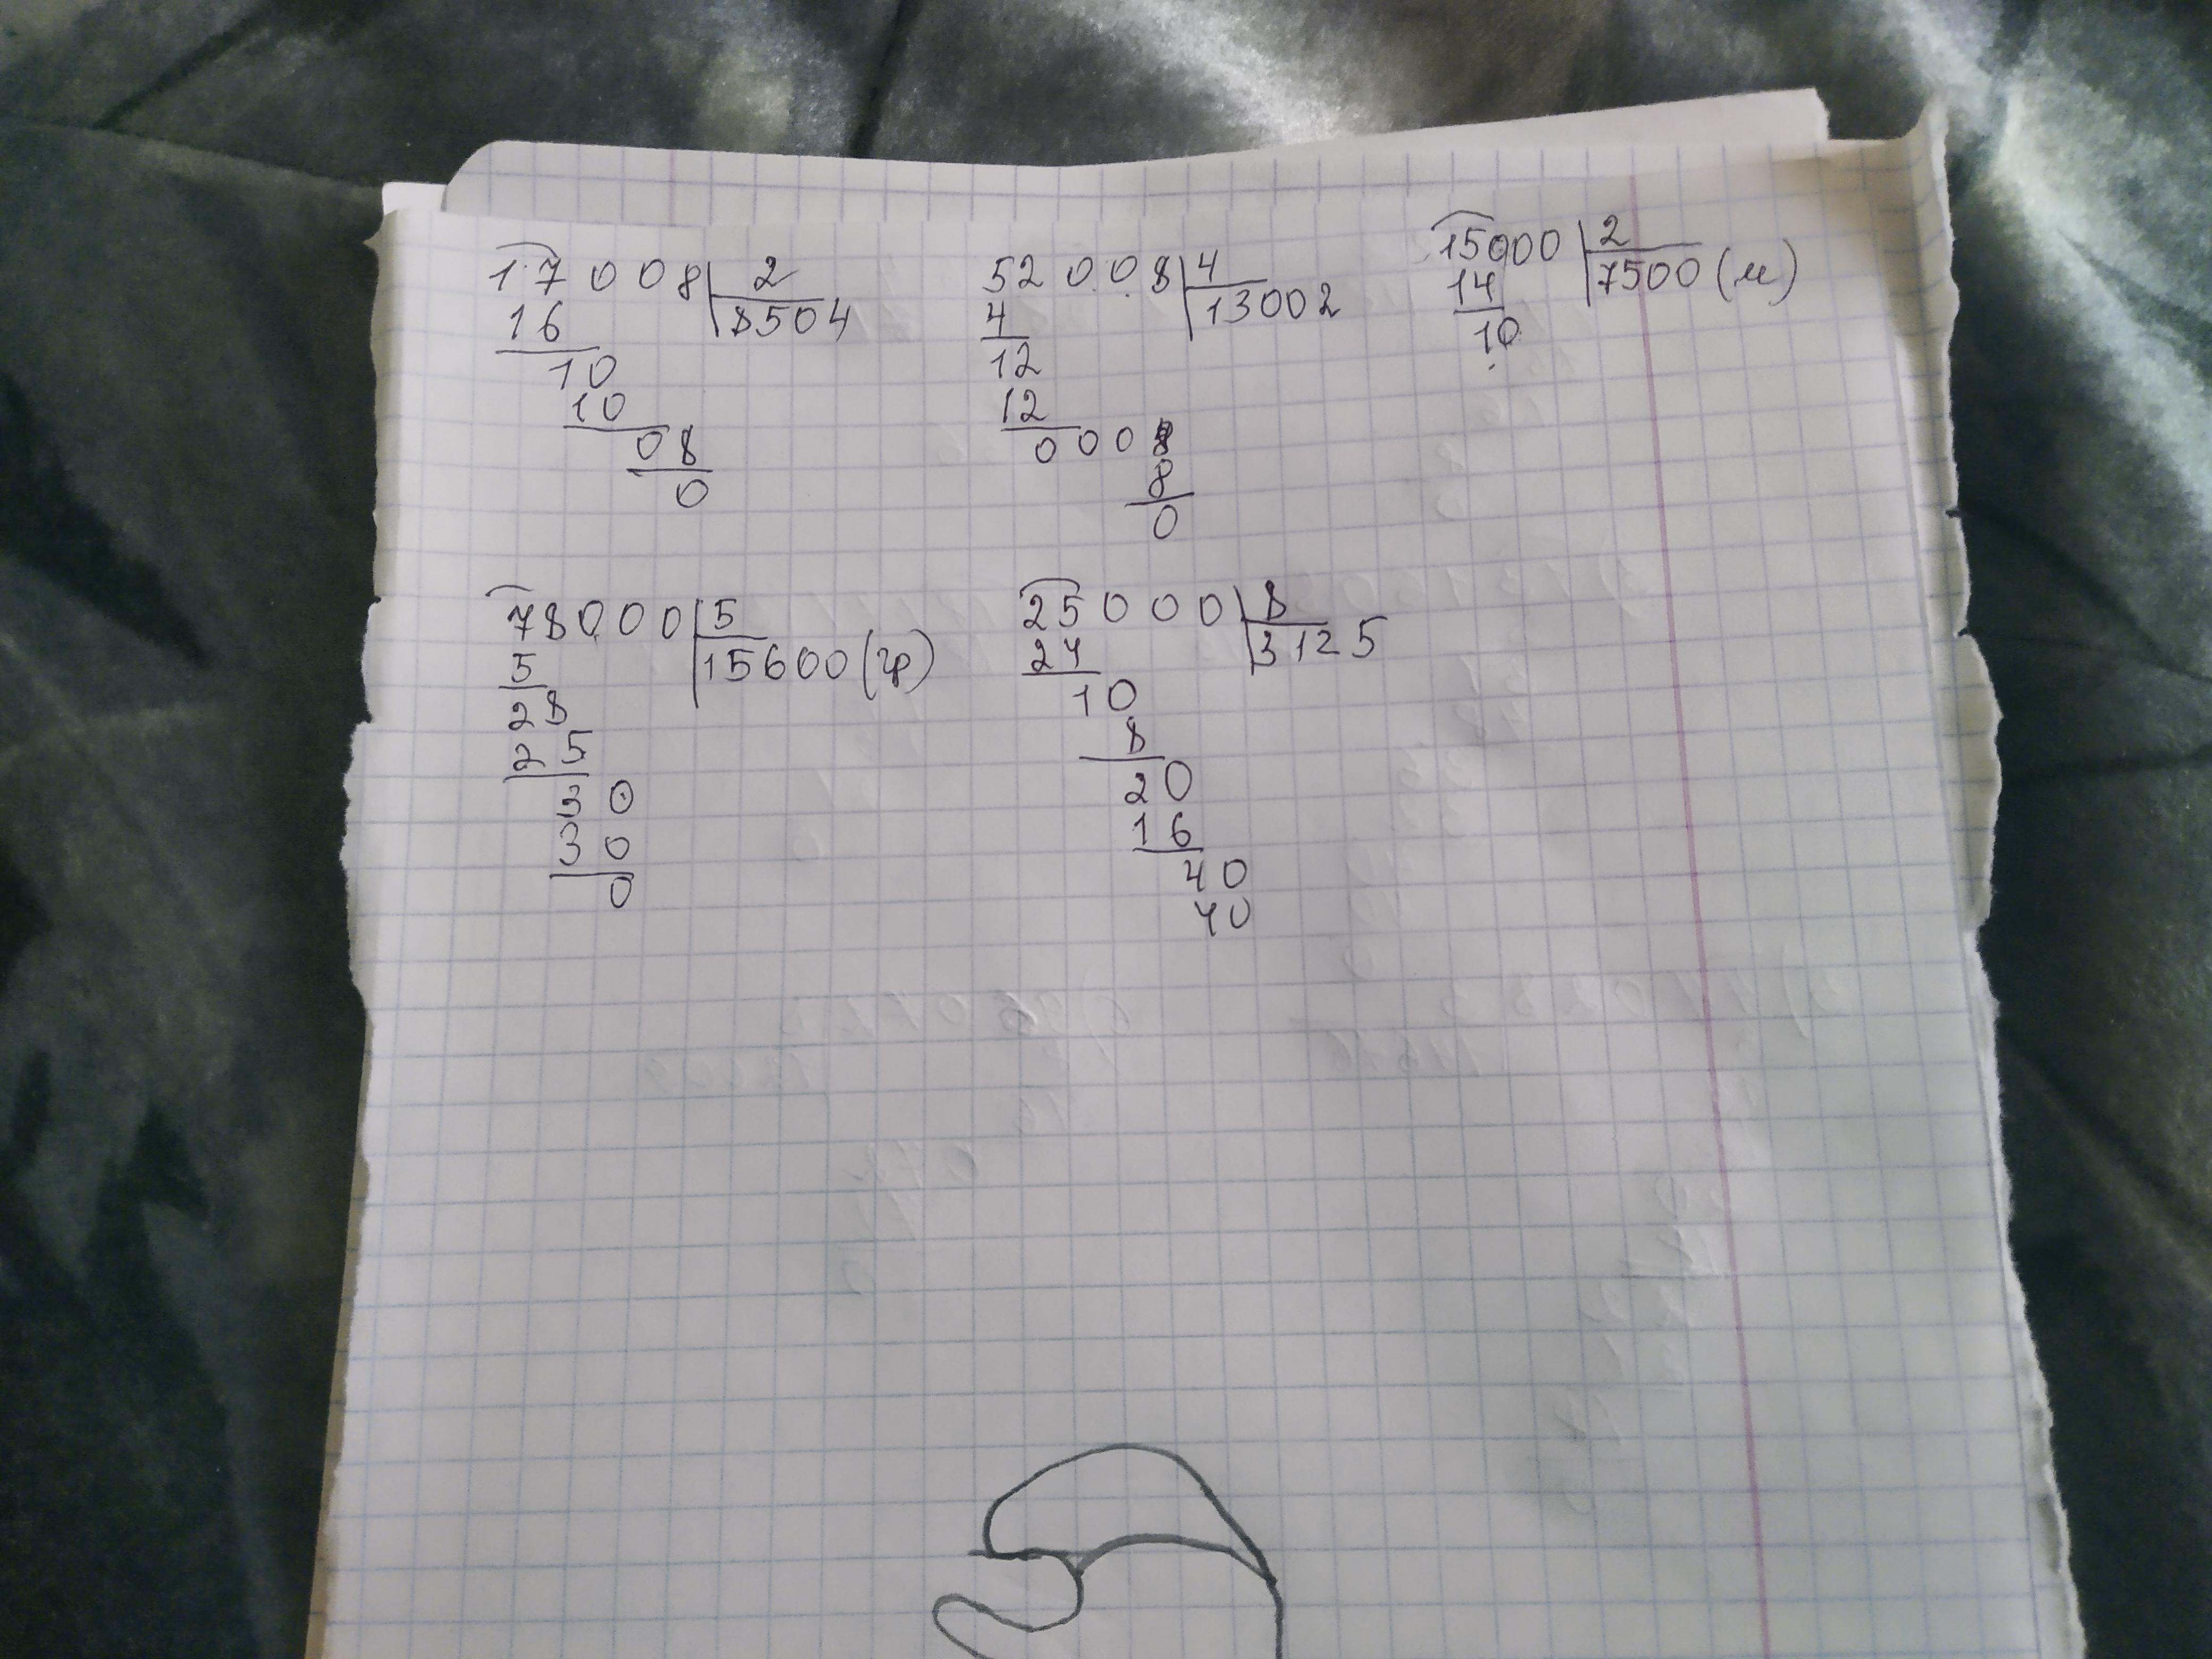 17008 2
16 8504
10
10
08
0
52008 4
4 13002
12
12
0008
8
0
15000 2
14 7500 (м)
10
78000 5
5 15600 (гр)
28
25
30
30
0
25000 8
24 3125
10
8
20
16
40
40